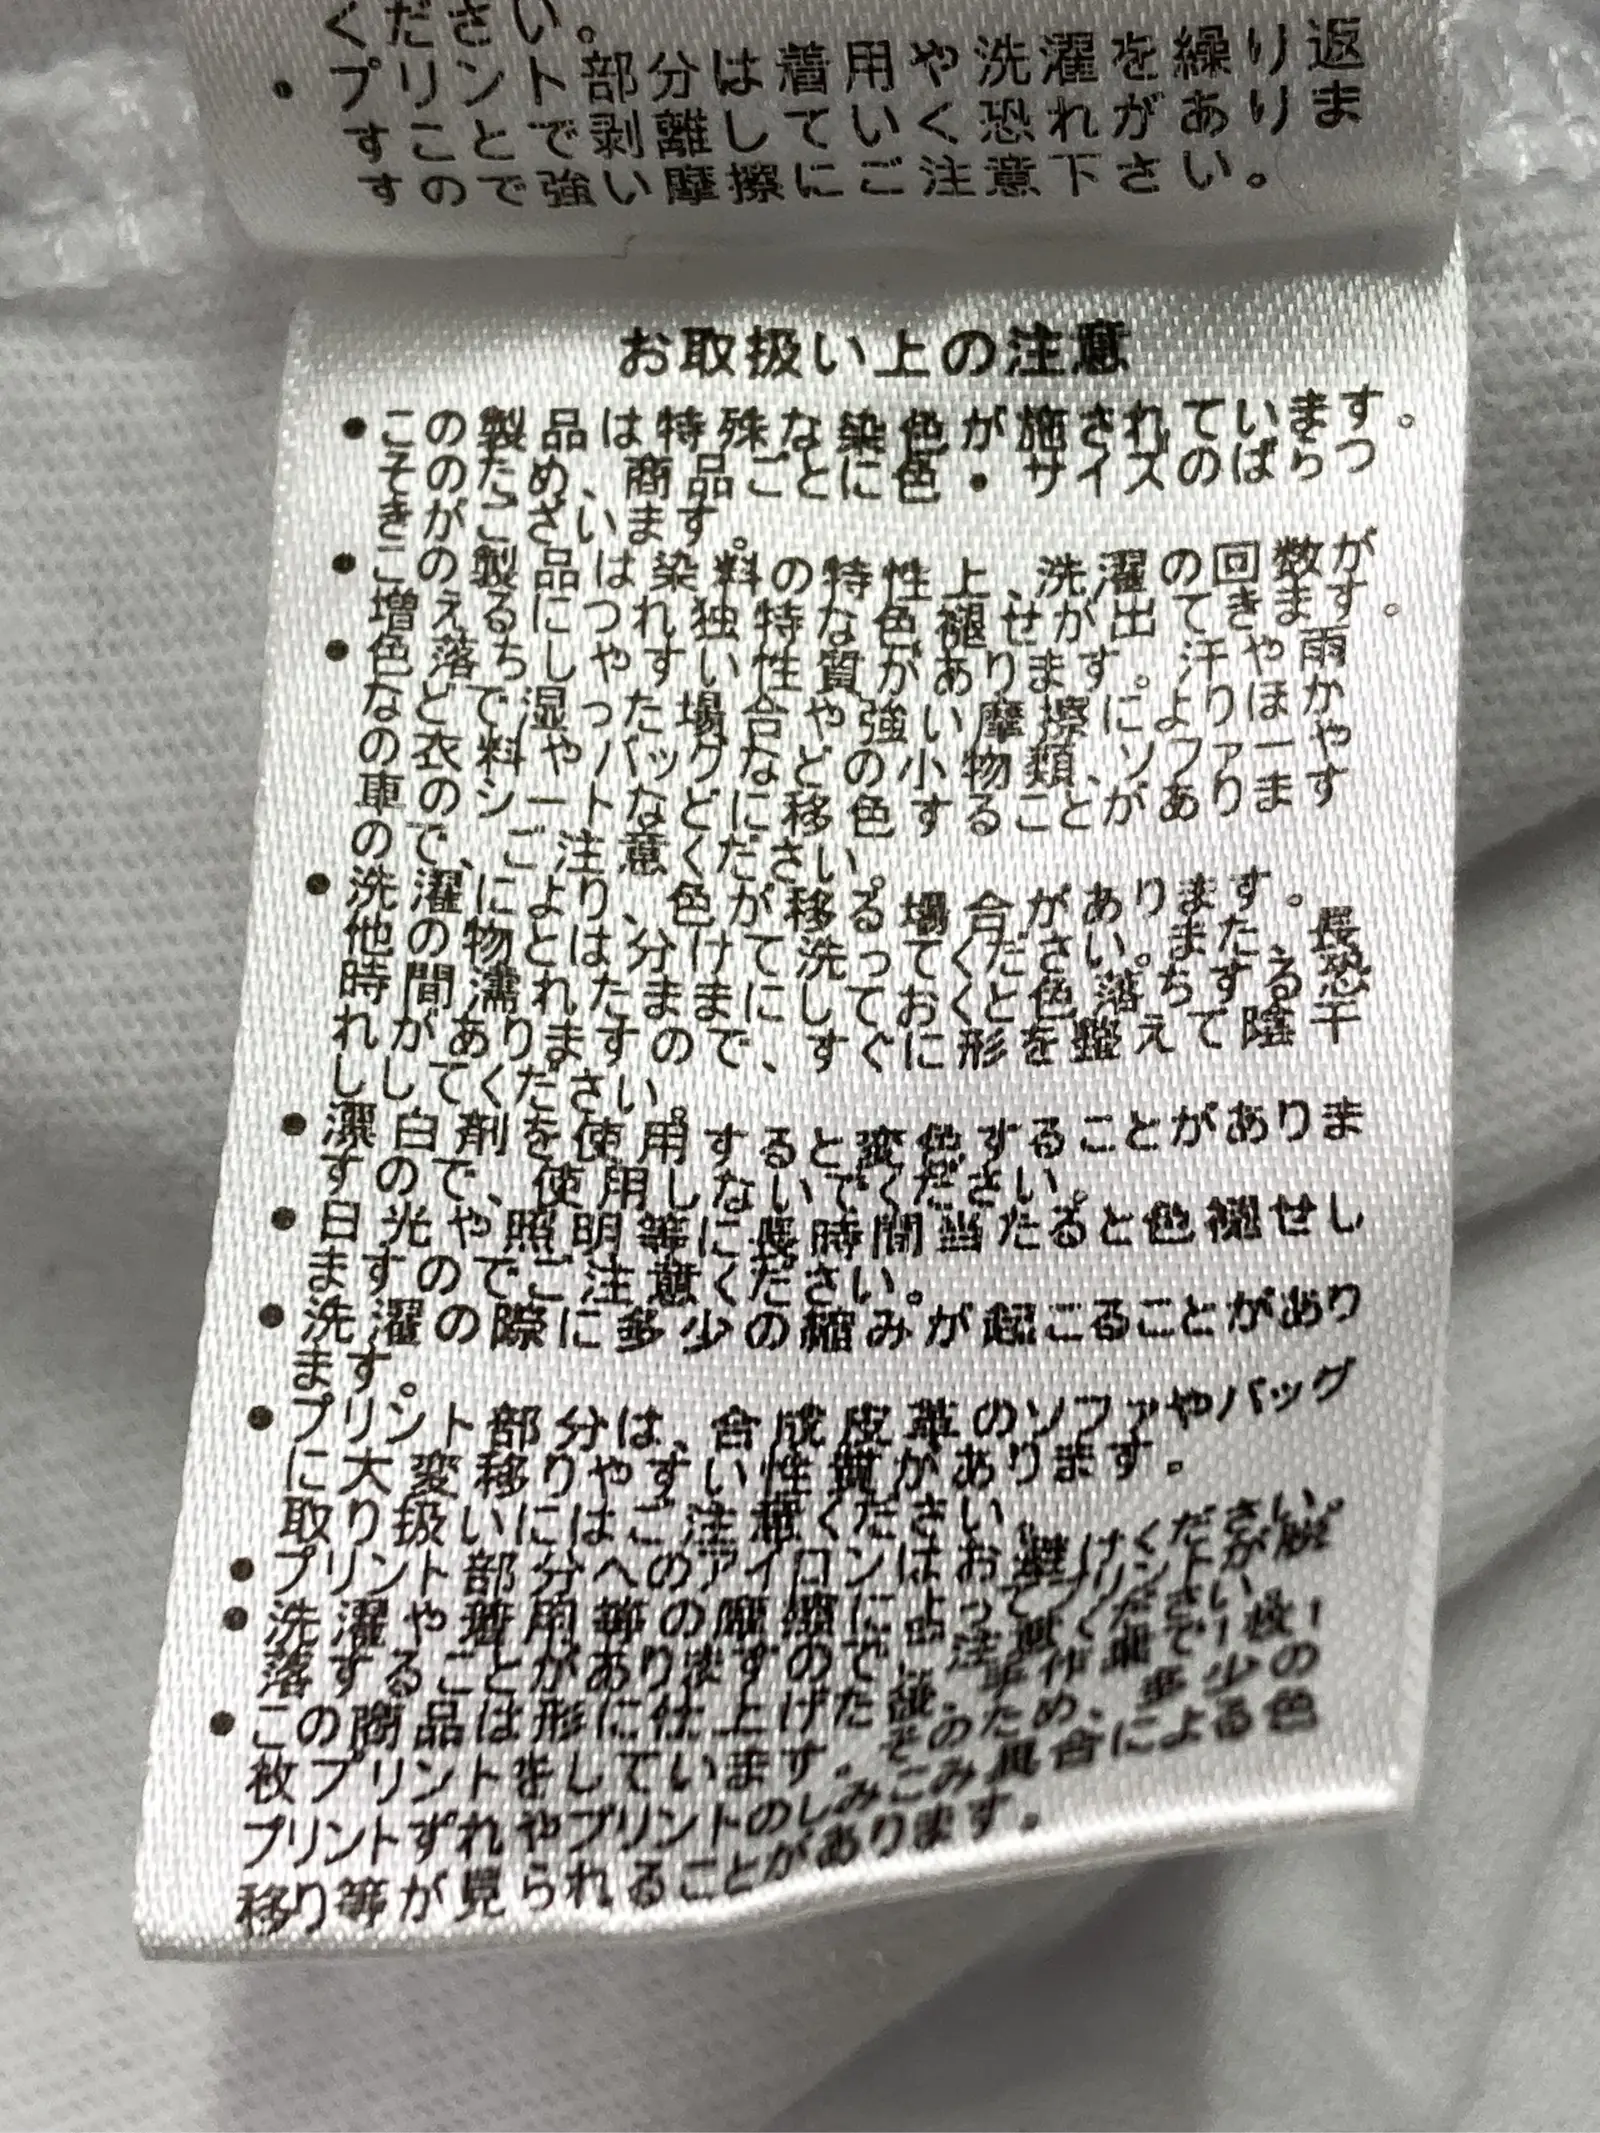 ください。
・プリント部分は着用や洗濯を繰り返
すことで剥離していく恐れがありま
すので強い摩擦にご注意下さい。
お取扱い上の注意
・この製品は特殊な染色が施されています。
そのため、商品ごとに色・サイズのばらつ
きがございます。
・この製品は染料の特性上、洗濯の回数が
増えるにつれ独特な色褪せが出てきます。
・色落ちしやすい性質があります。汗や雨
などで湿った場合や強い摩擦によりほか
の衣料やバッグなどの小物類、ソファーや
車のシートなどに移色することがあります
ので、ご注意ください。
・洗濯により、色が移る場合があります。
他の物とは分けて洗ってください。また、長
時間濡れたままにしておくと色落ちする恐
れがありますので、すぐに形を整えて陰干
ししてください。
・漂白剤を使用すると変色することがありま
すので、使用しないでください。
・日光や照明等に長時間当たると色褪せし
ますのでご注意ください。
・洗濯の際に多少の縮みが起こることがあり
ます。
・プリント部分は、合成皮革のソファやバッグ
に大変移りやすい性質があります。
取り扱いにはご注意ください。
・プリント部分へのアイロンはお避けください。
・洗濯や着用等の摩擦によってプリントが脱
落することがありますので、注意ください。
・この商品は形に仕上げた後、手作業で1枚1
枚プリントをしています。そのため、多少の
プリントずれやプリントのしみこみ具合による色
移り等が見られることがあります。